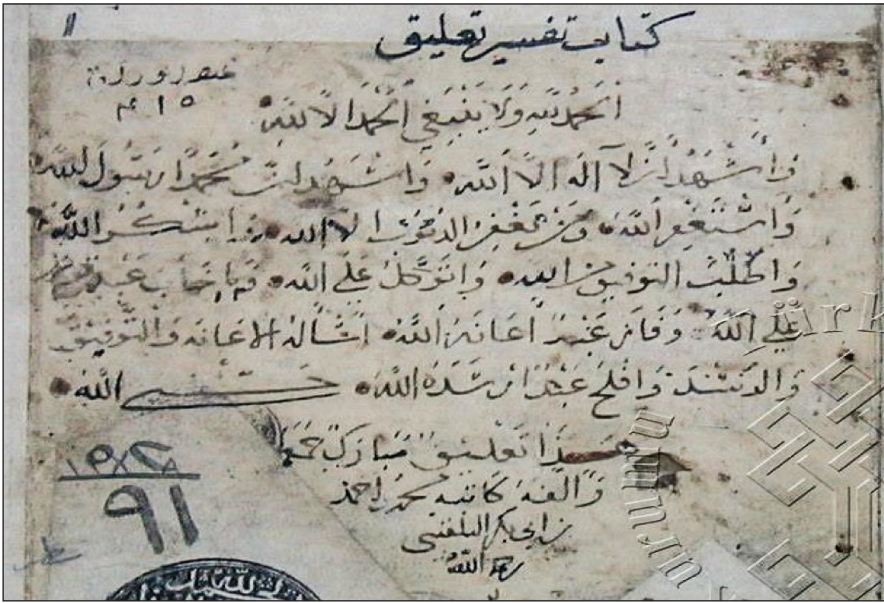 كتاب تفسير تعليق
٤١٥
اَلحَمْدُ لِلّهِ وَلَا يَنْبَغِي اَلحَمْدُ الَّا لِلّهِ
وَأَشْهَدُ اَنْ لَا آلَهَ الَّا اَللهَ وَاشْهَدُ انَّ مُحَمَّدًا رَسُولُ اللهِ
وَاسْتَغْفِرُ اَللهَ وَمَنْ يَغْفِرُ الذنُوبَ الا الله وَاَشْكُرُ اللهَ
وَاطْلُبُ التوفيق من الله وَاتَوَكَّلُ عَلَي اَلله فما خَابَ عَبْد
عَلَي اللهِ وَفَازَ عَبْدٌ اَعَانَهُ اَللهُ اسْأَلُهُ الاعَانَه وَالتَّوْفِيْق
وَافْلَحَ عَبْدٌ ارْشَدَهُ اللهُ حَسْبِي اللهُ
هَذَا تَعْلِيق مُبَارَك جَمَعَهُ
وَالفَهُ كَاتبه محمد بن احمد
بن ابي بكر
رحمه اللهُ
٩١